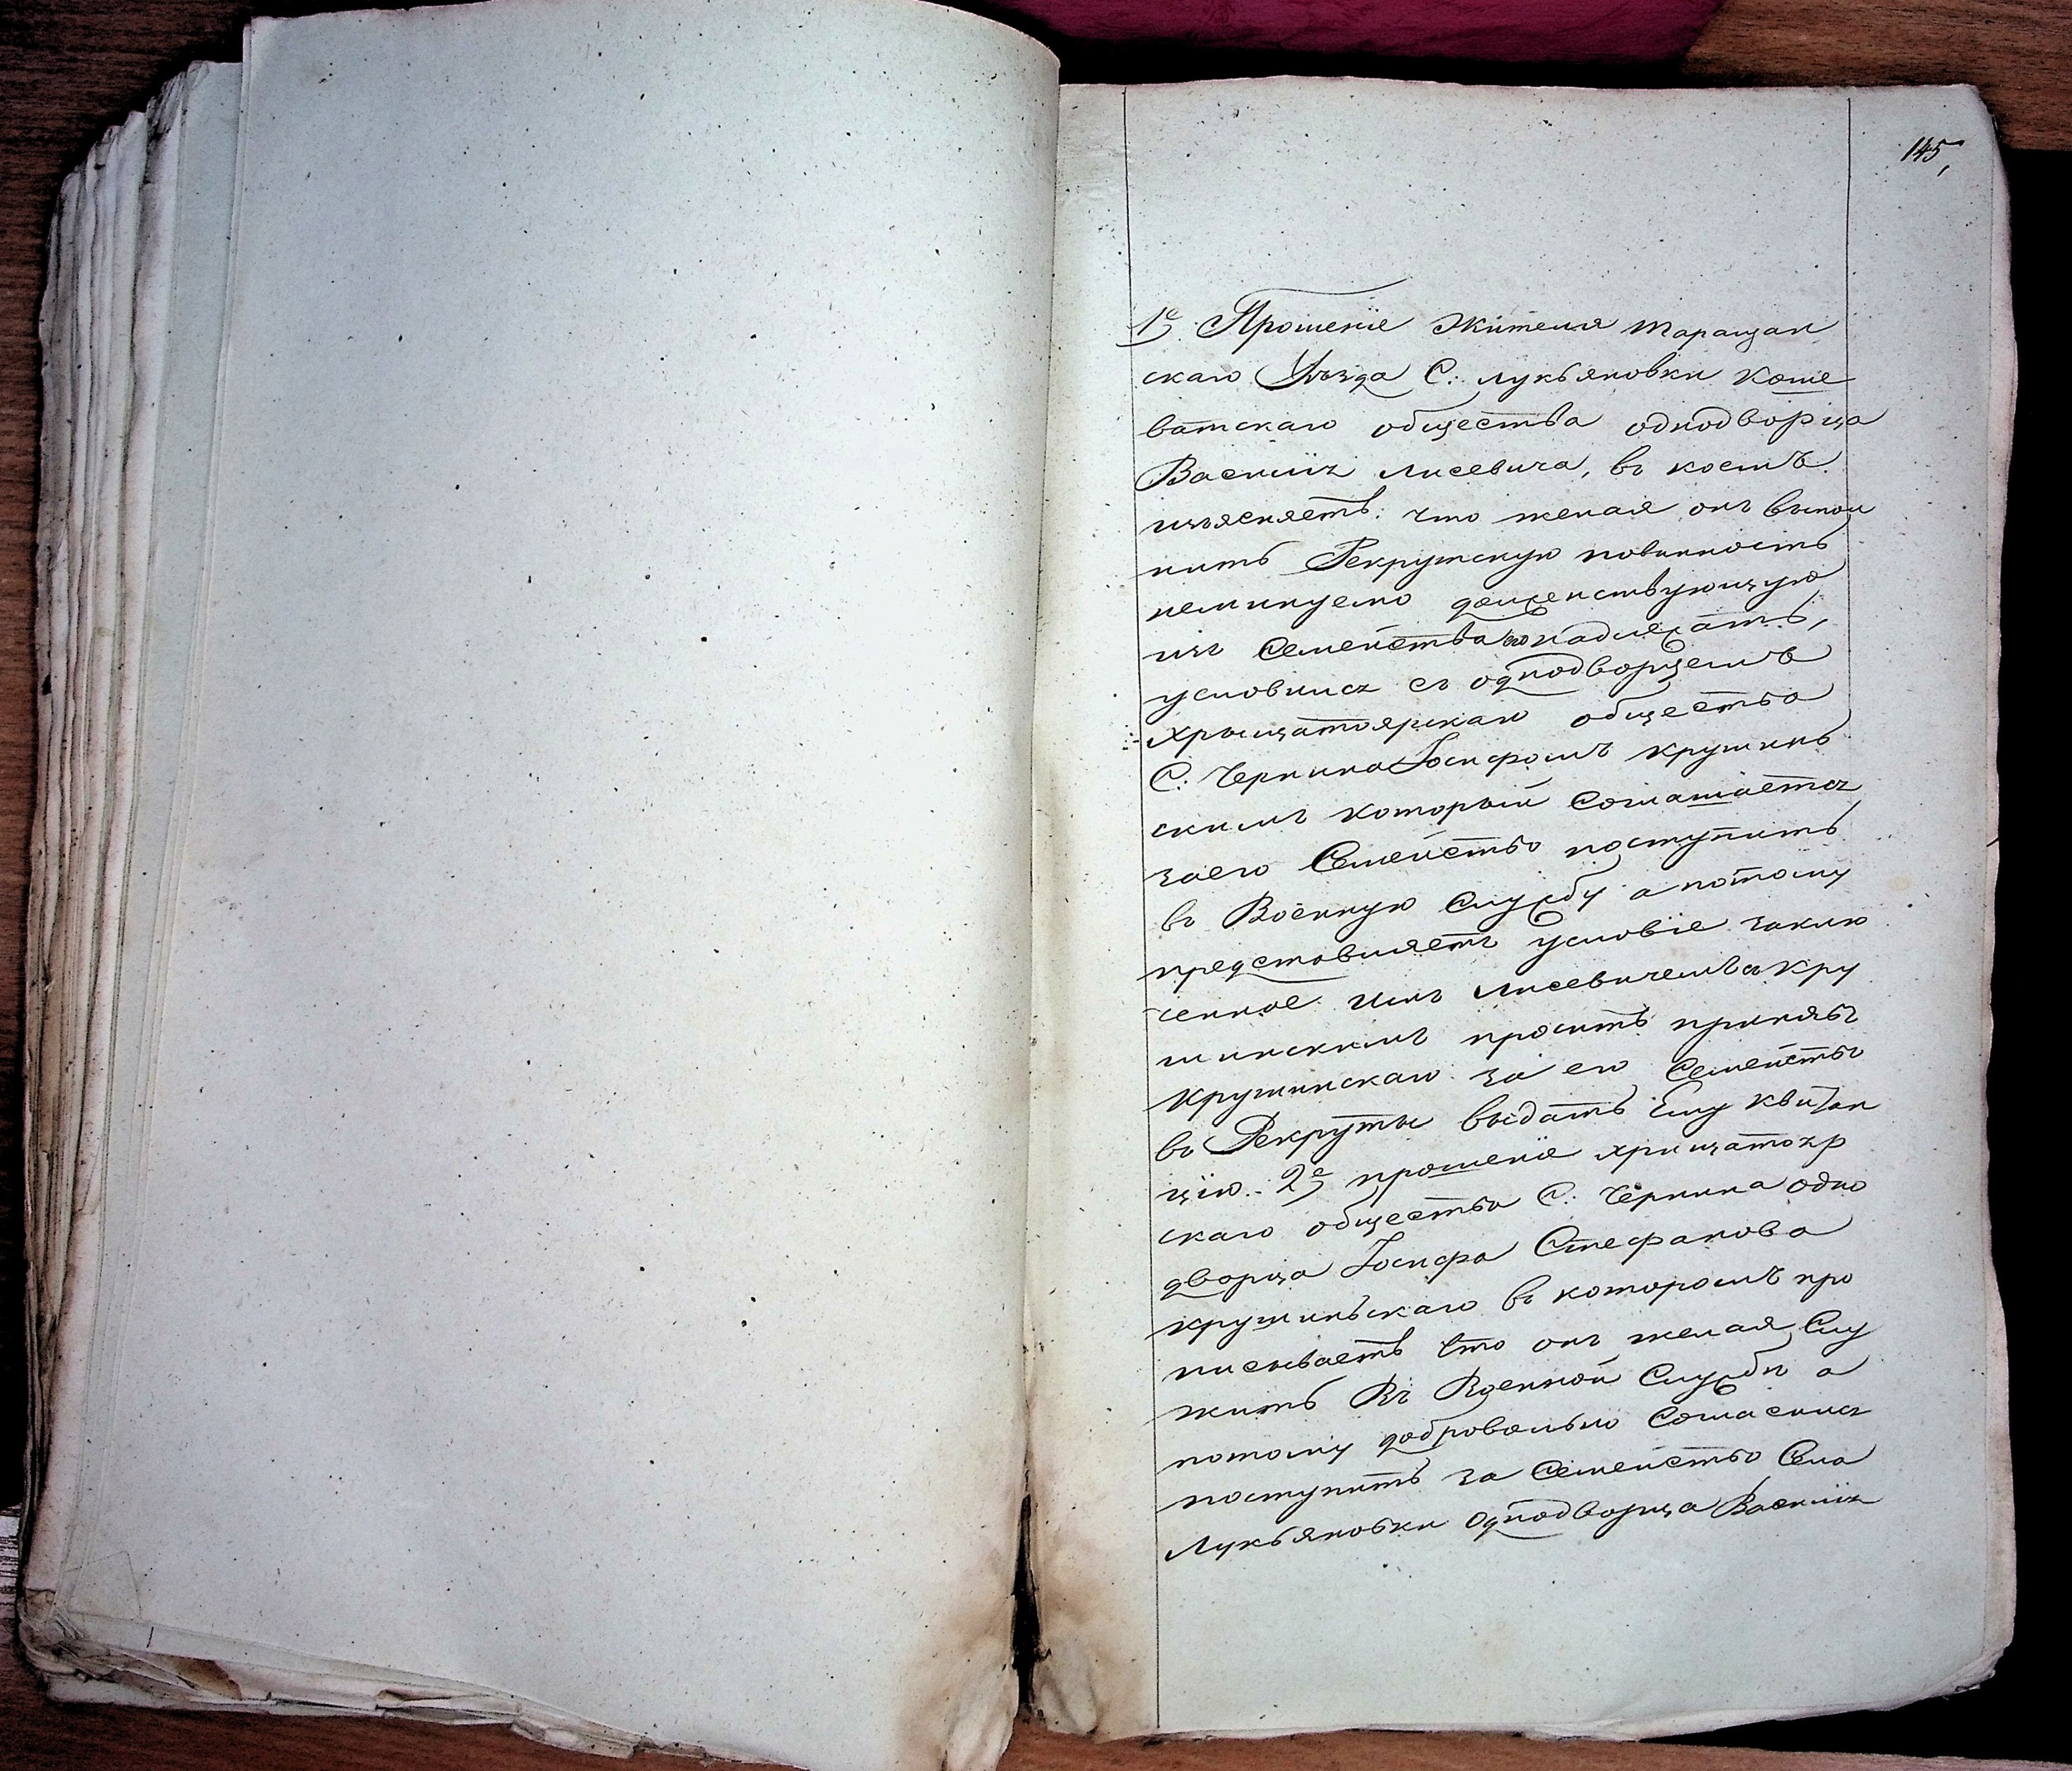 145,
1е Прошеніе Жителя таращан
скаго Уѣзда С: лукьяновки коше
ватскаго общества однодворца
Василія лисевича, въ коемъ
изъясняетъ: что желая онъ выпол
нить Рекрутскую повинность
неминуемо долженствующую
изъ Семейства его надлежать,
условился съ однодворцемъ
хрыщатоярскаго общества
С: Чернина Іосифомъ крушинь
скимъ который Соглашается
заего Семейство поступить
въ Военную Службу а потому
представляетъ условіе заклю
ченное имъ лисевичемъ съ кру
шинскимъ проситъ принявъ
крушинскаго за его Семейство
въ Рекруты выдать Ему квитан
цію. 2е прошеніе хрищатояр
скаго общества С: Чернина одно
дворца Іосифа Стефанова
крушиньскаго въ которомъ про
писываетъ что онъ желая Слу
жить Въ Военной Службѣ а
потому добровольно Согласился
поступить за Семейство Села
Лукьяновки Однодворца Василія